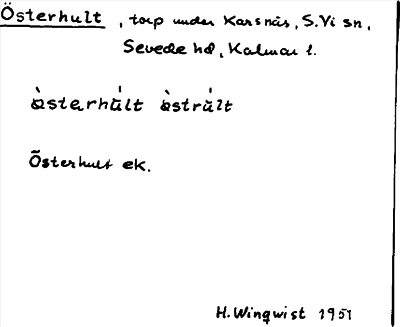 Österhult, torp under Karsnäs, S.Vi sn,
Sevede hd, Kalmar l.
ὸsterhúlt ὸstrúlt
Österhult ek.
H. Winqwist 1951